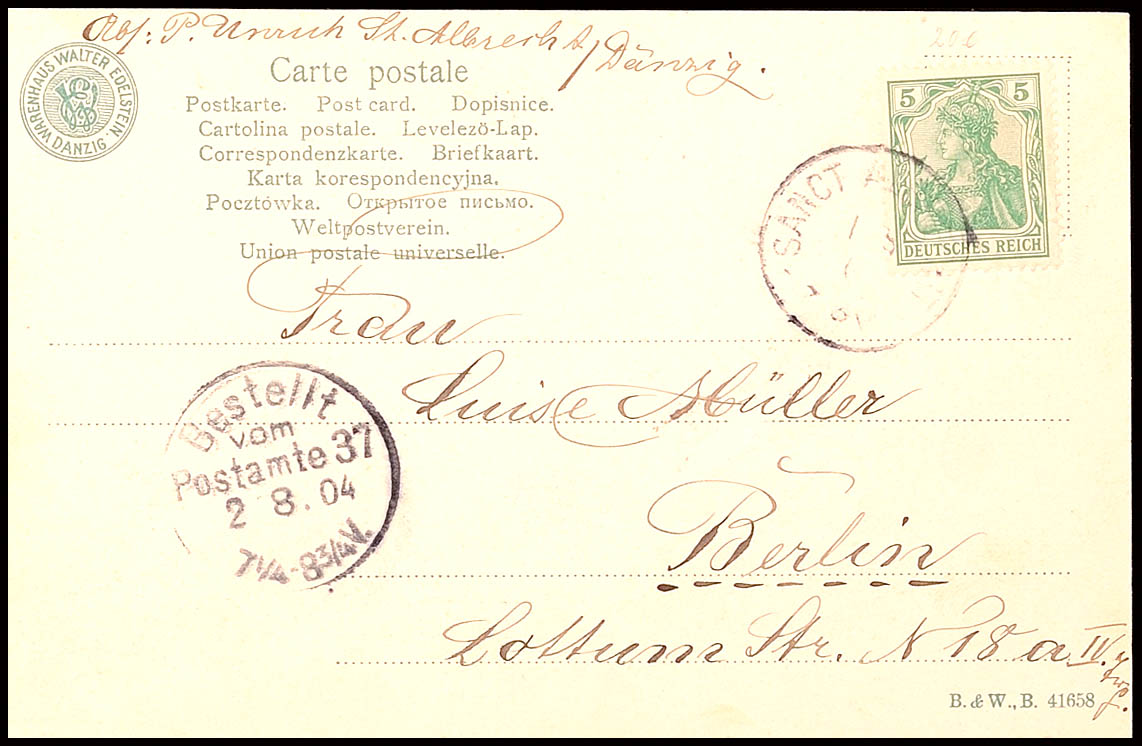 Abs: P. Unruh St. Albrecht/Danzig.
WARENHAUS WALTER EDELSTEIN. DANZIG.
Carte postale
Postkarte. Post card. Dopisnice.
Cartolina postale. Levelező-Lap.
Correspondenzkarte. Briefkaart.
Karta korespondencyjna.
Pocztówka. Открытое письмо.
Weltpostverein.
Union postale universelle.
206
5 5
DEUTSCHES REICH
SANCT
Frau
Luise Müller
Bestellt
vom
Postamte 37
2 8.04
7¼-8¾V.
Berlin
Lottum Str. N 18a IV.
B. & W., B. 41658